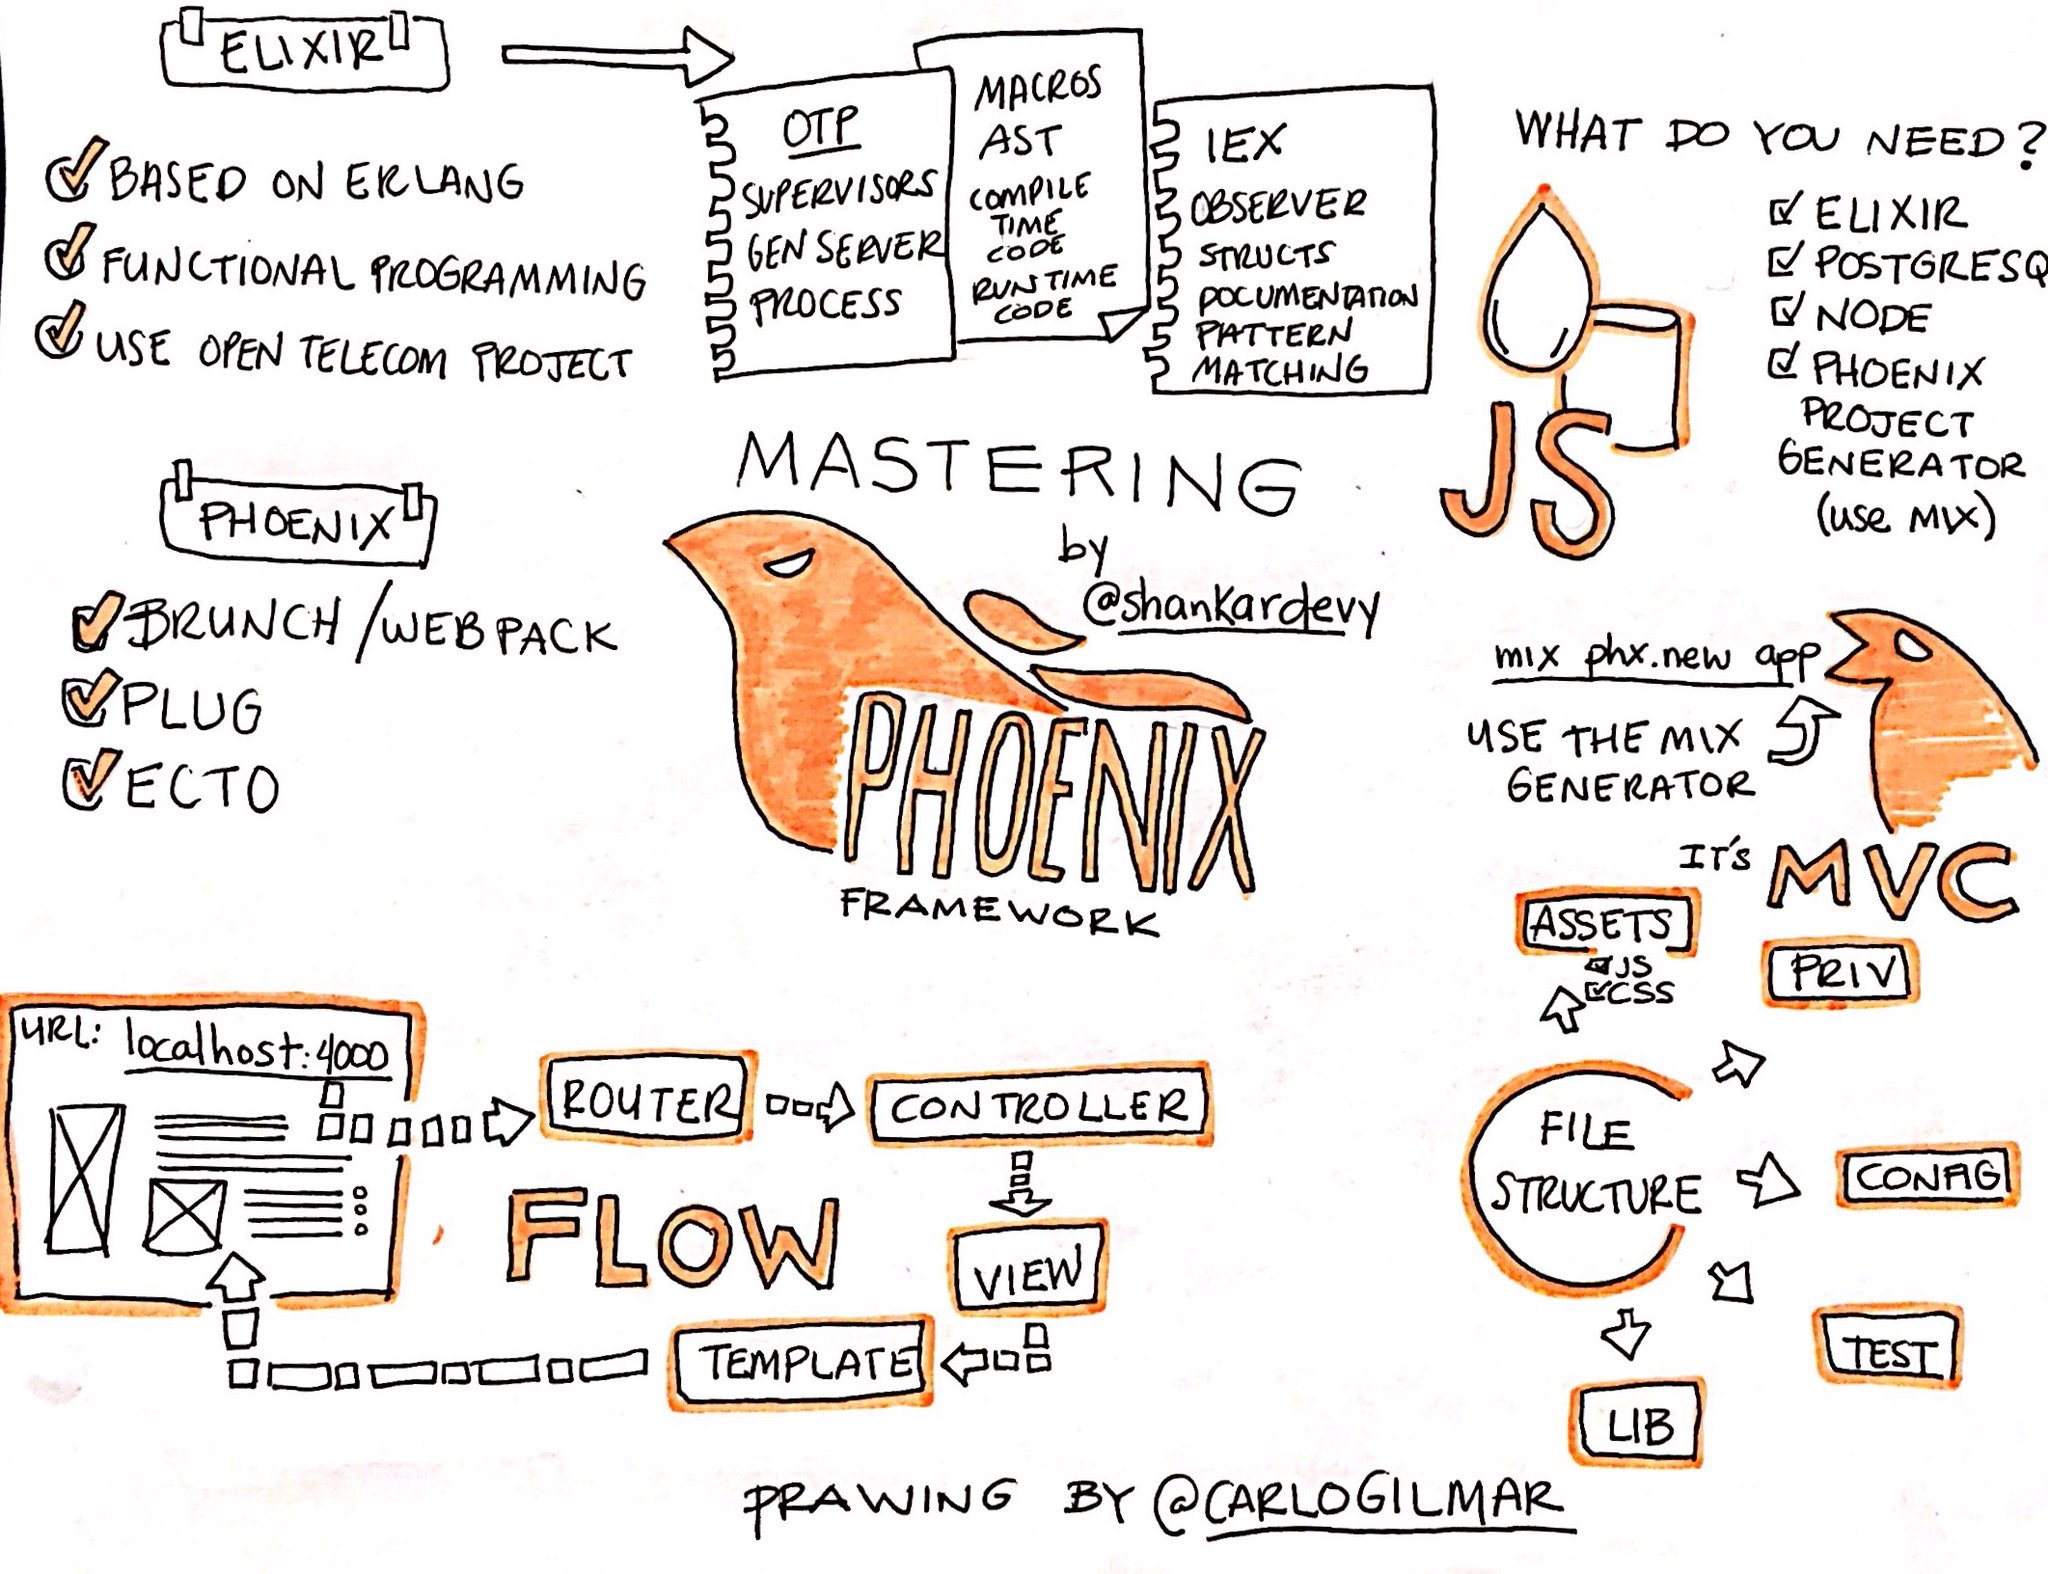 ELIXIR
BASED ON ERLANG
FUNCTIONAL PROGRAMMING
USE OPEN TELECOM PROJECT
OTP
SUPERVISORS
GEN SERVER
PROCESS
MACROS
AST
COMPILE
TIME
CODE
RUNTIME
CODE
IEX
OBSERVER
STRUCTS
DOCUMENTATION
PATTERN
MATCHING
WHAT DO YOU NEED?
ELIXIR
POSTGRESQ
NODE
PHOENIX
PROJECT
GENERATOR
(use MIX)
JS
PHOENIX
BRUNCH/WEBPACK
PLUG
ECTO
MASTERING
by
@shankardevy
PHOENIX
FRAMEWORK
mix phx.new app
USE THE MIX
GENERATOR
IT'S MVC
URL: localhost:4000
ROUTER
CONTROLLER
VIEW
TEMPLATE
FLOW
ASSETS
JS
CSS
PRIV
FILE
STRUCTURE
CONFIG
TEST
LIB
DRAWING BY @CARLOGILMAR